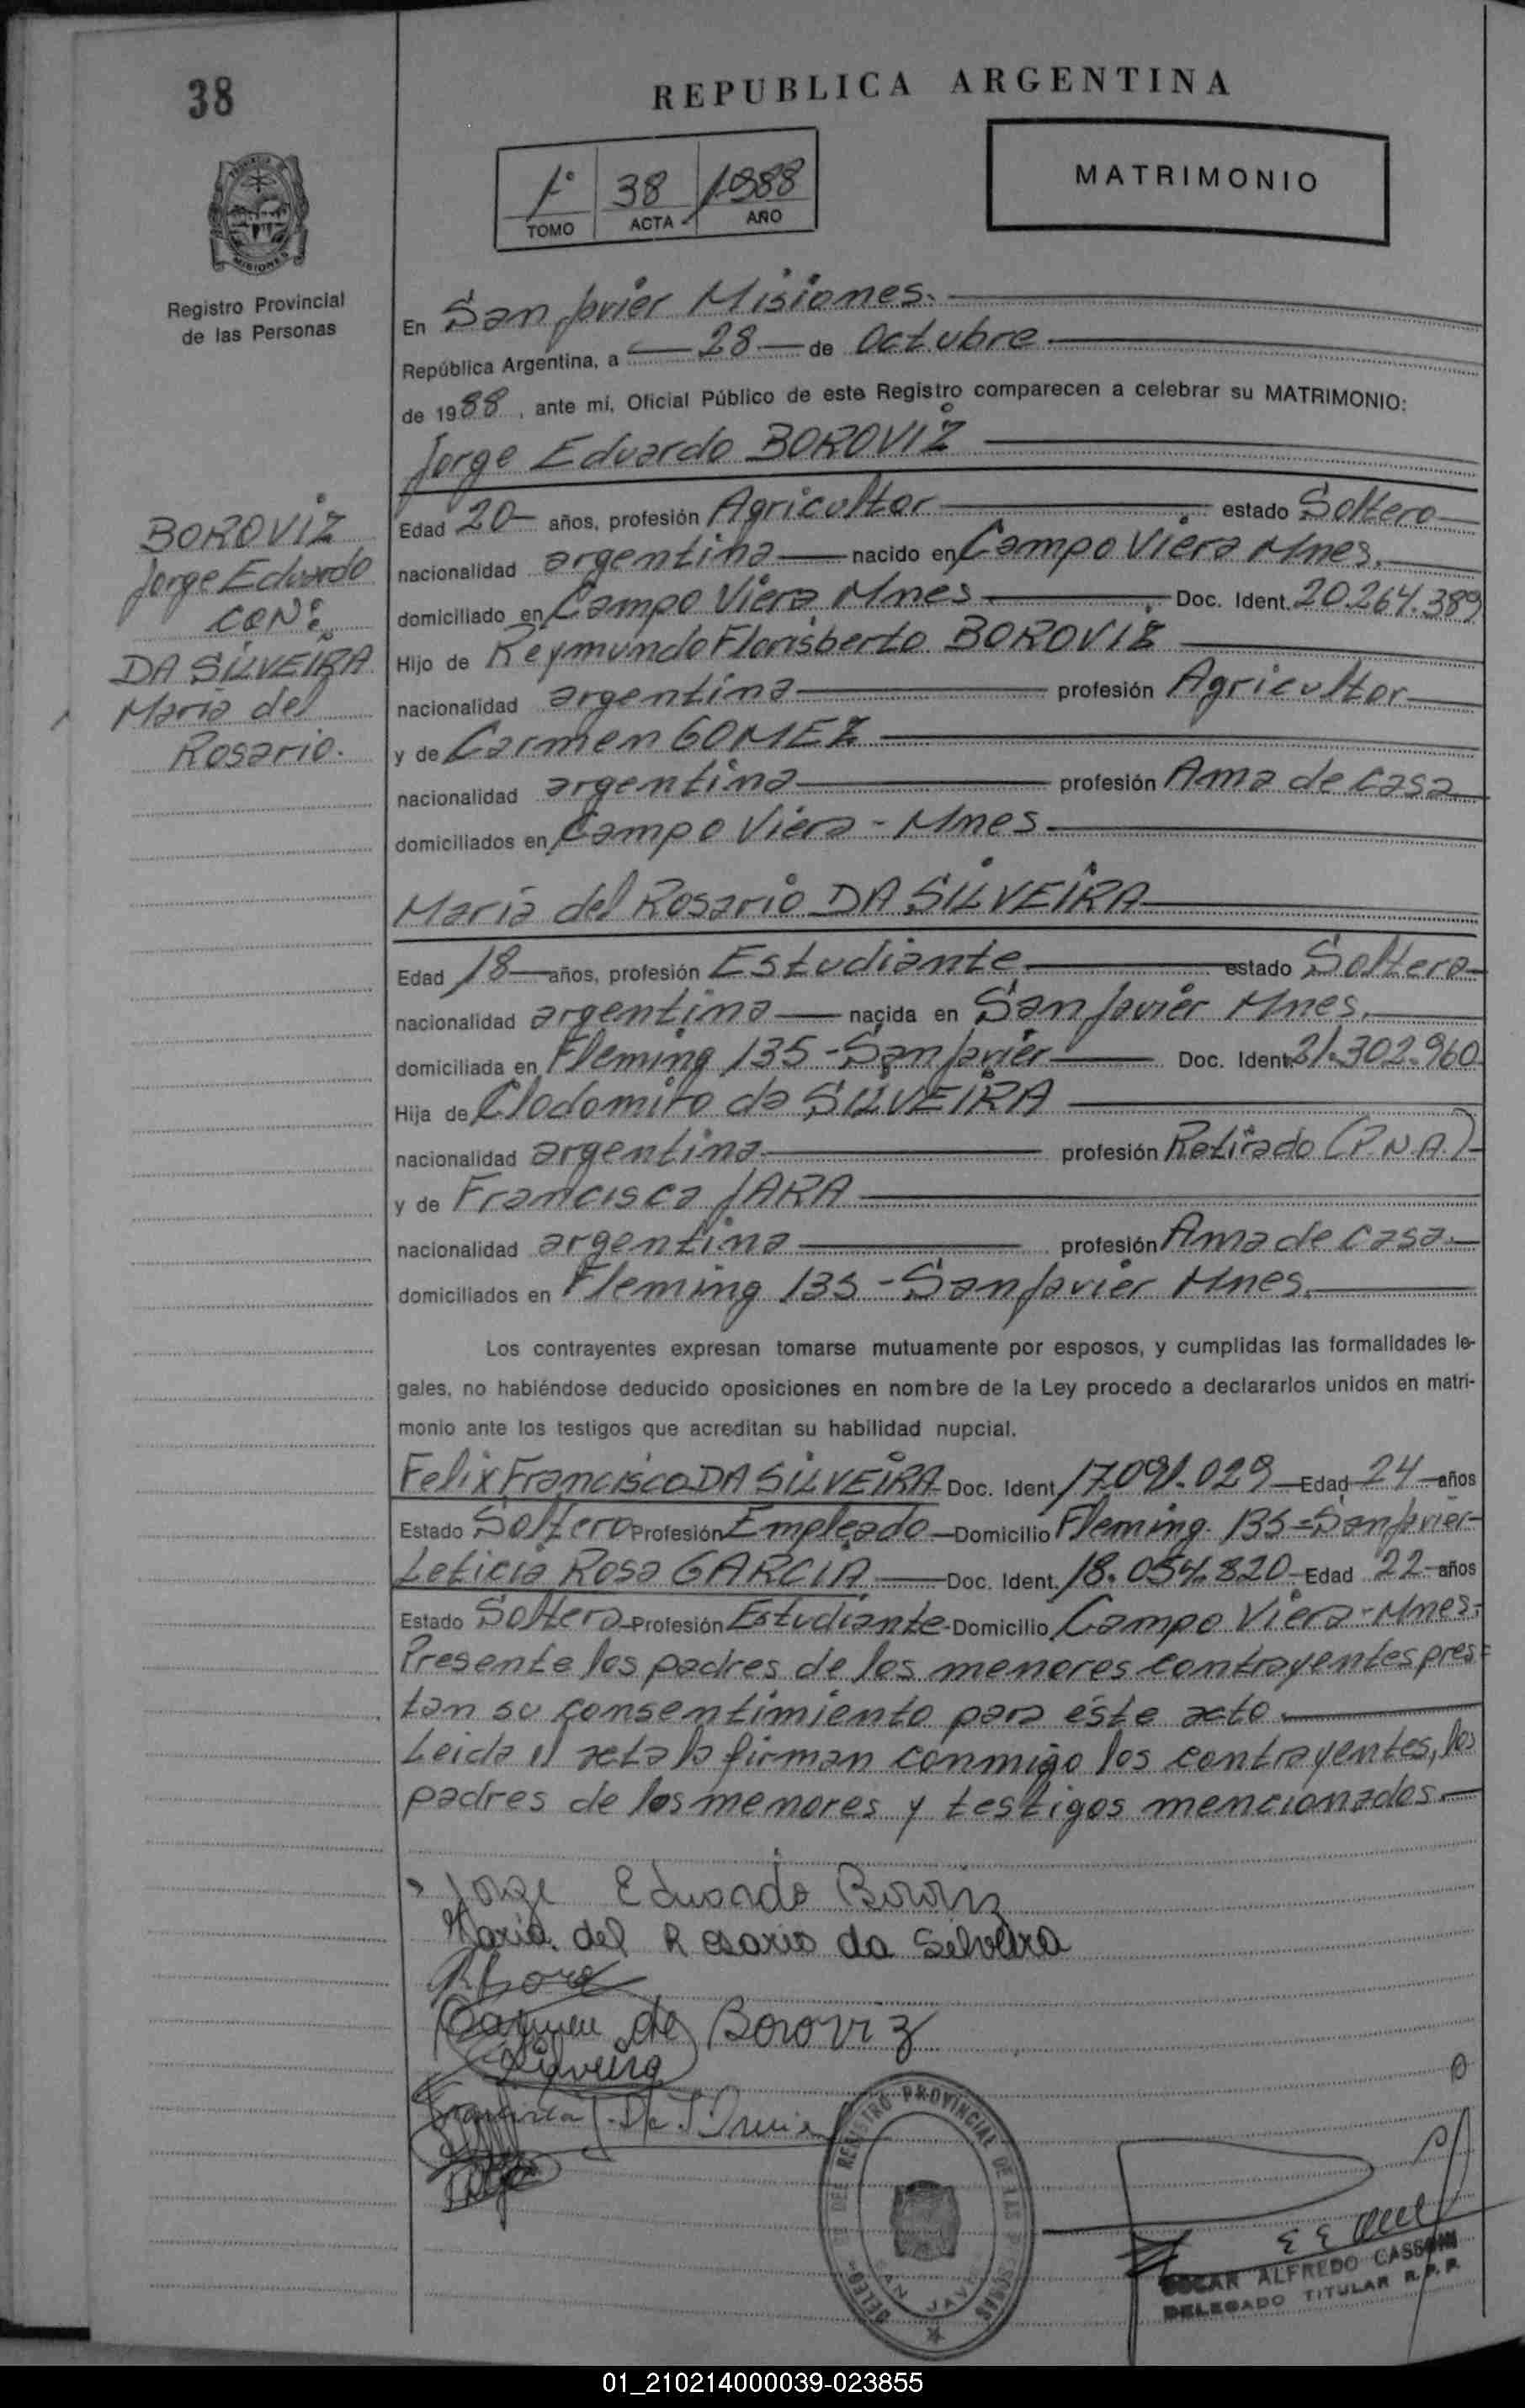 38
REPUBLICA ARGENTINA
1° 38 1988
TOMO ACTA AÑO
MATRIMONIO
MISIONES
Registro Provincial
de las Personas
En San Javier Misiones.
República Argentina, a 28 de Octubre
de 1988, ante mí, Oficial Público de este Registro comparecen a celebrar su MATRIMONIO:
Jorge Eduardo BOROVIZ
BOROVIZ
Jorge Eduardo
CON:
DA SILVEIRA
Maria del
Rosario.
Edad 20 años, profesión Agricultor estado Soltero
nacionalidad argentina nacido en Campo Viera Mnes.
domiciliado en Campo Viera Mnes Doc. Ident. 20.264.389
Hijo de Reymundo Florisberto BOROVIZ
nacionalidad argentina profesión Agricultor
y de Carmen GOMEZ
nacionalidad argentina profesión Ama de casa
domiciliados en Campo Viera - Mnes.
María del Rosario DA SILVEIRA
Edad 18 años, profesión Estudiante estado Soltera
nacionalidad argentina nacida en San Javier Mnes.
domiciliada en Fleming 135 - San Javier Doc. Ident. 21.302.960
Hija de Clodomiro da SILVEIRA
nacionalidad argentina profesión Retirado (P.N.A.)
y de Francisca JARA
nacionalidad argentina profesión Ama de casa.
domiciliados en Fleming 135 - San Javier Mnes.
Los contrayentes expresan tomarse mutuamente por esposos, y cumplidas las formalidades le-
gales, no habiéndose deducido oposiciones en nombre de la Ley procedo a declararlos unidos en matri-
monio ante los testigos que acreditan su habilidad nupcial.
Felix Francisco DA SILVEIRA Doc. Ident. 17.091.029 Edad 24 años
Estado Soltero Profesión Empleado Domicilio Fleming 135 = San Javier
Leticia Rosa GARCIA Doc. Ident. 18.054.820 Edad 22 años
Estado Soltera Profesión Estudiante Domicilio Campo Viera - Mnes.
Presente los padres de los menores contrayentes pres=
tan su consentimiento para éste acto.
Leida el acta la firman conmigo los contrayentes, los
padres de los menores y testigos mencionados.
Jorge Eduardo Boroviz
Maria del Rosario da Silveira
Carmen de Boroviz
Silveira
REGISTRO PROVINCIAL DE LAS PERSONAS
OSCAR ALFREDO CASSONI
DELEGADO TITULAR R.P.P.
01_210214000039-023855